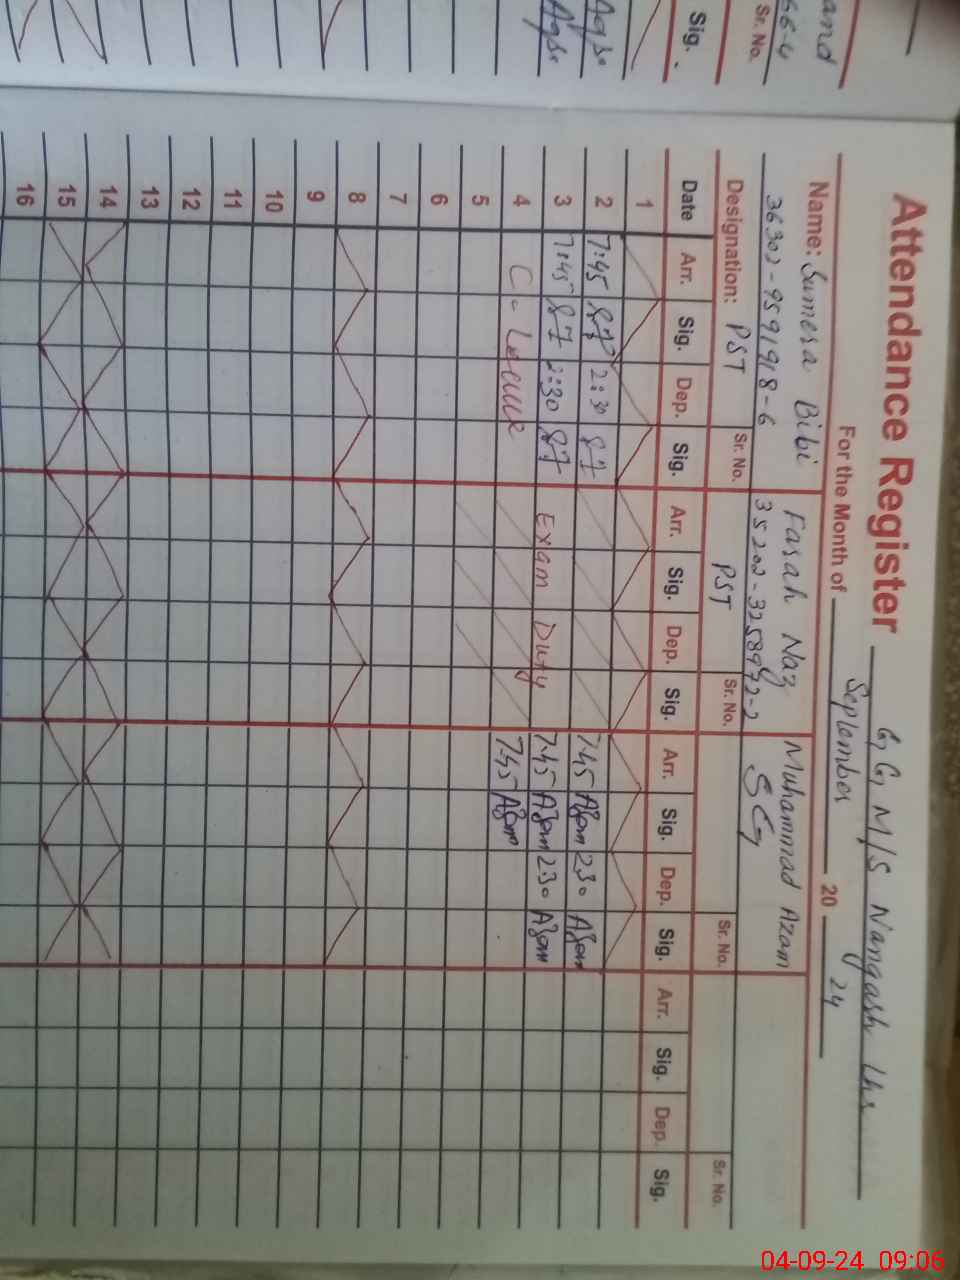 and
66-4
Sr. No.
Sig.
Aqsa
Aqsa
Attendance Register G G M/S Nangash Lhr
For the Month of September 20 24
Name: Sumera Bibi Farah Naz Muhammad Azam
36302-9591918-6 35202-3258972-2 SG
Designation: PST Sr. No. PST Sr. No. Sr. No. Sr. No.
Date Arr. Sig. Dep. Sig. Arr. Sig. Dep. Sig. Arr. Sig. Dep. Sig. Arr. Sig. Dep. Sig.
1
2 7:45 2:30 7.45 Azam 2.30 Azam
3 7:45 2:30 Exam Duty 7.45 Azam 2.30 Azam
4 C-Leave 7.45 Azam
5
6
7
8
9
10
11
12
13
14
15
16
04-09-24 09:06